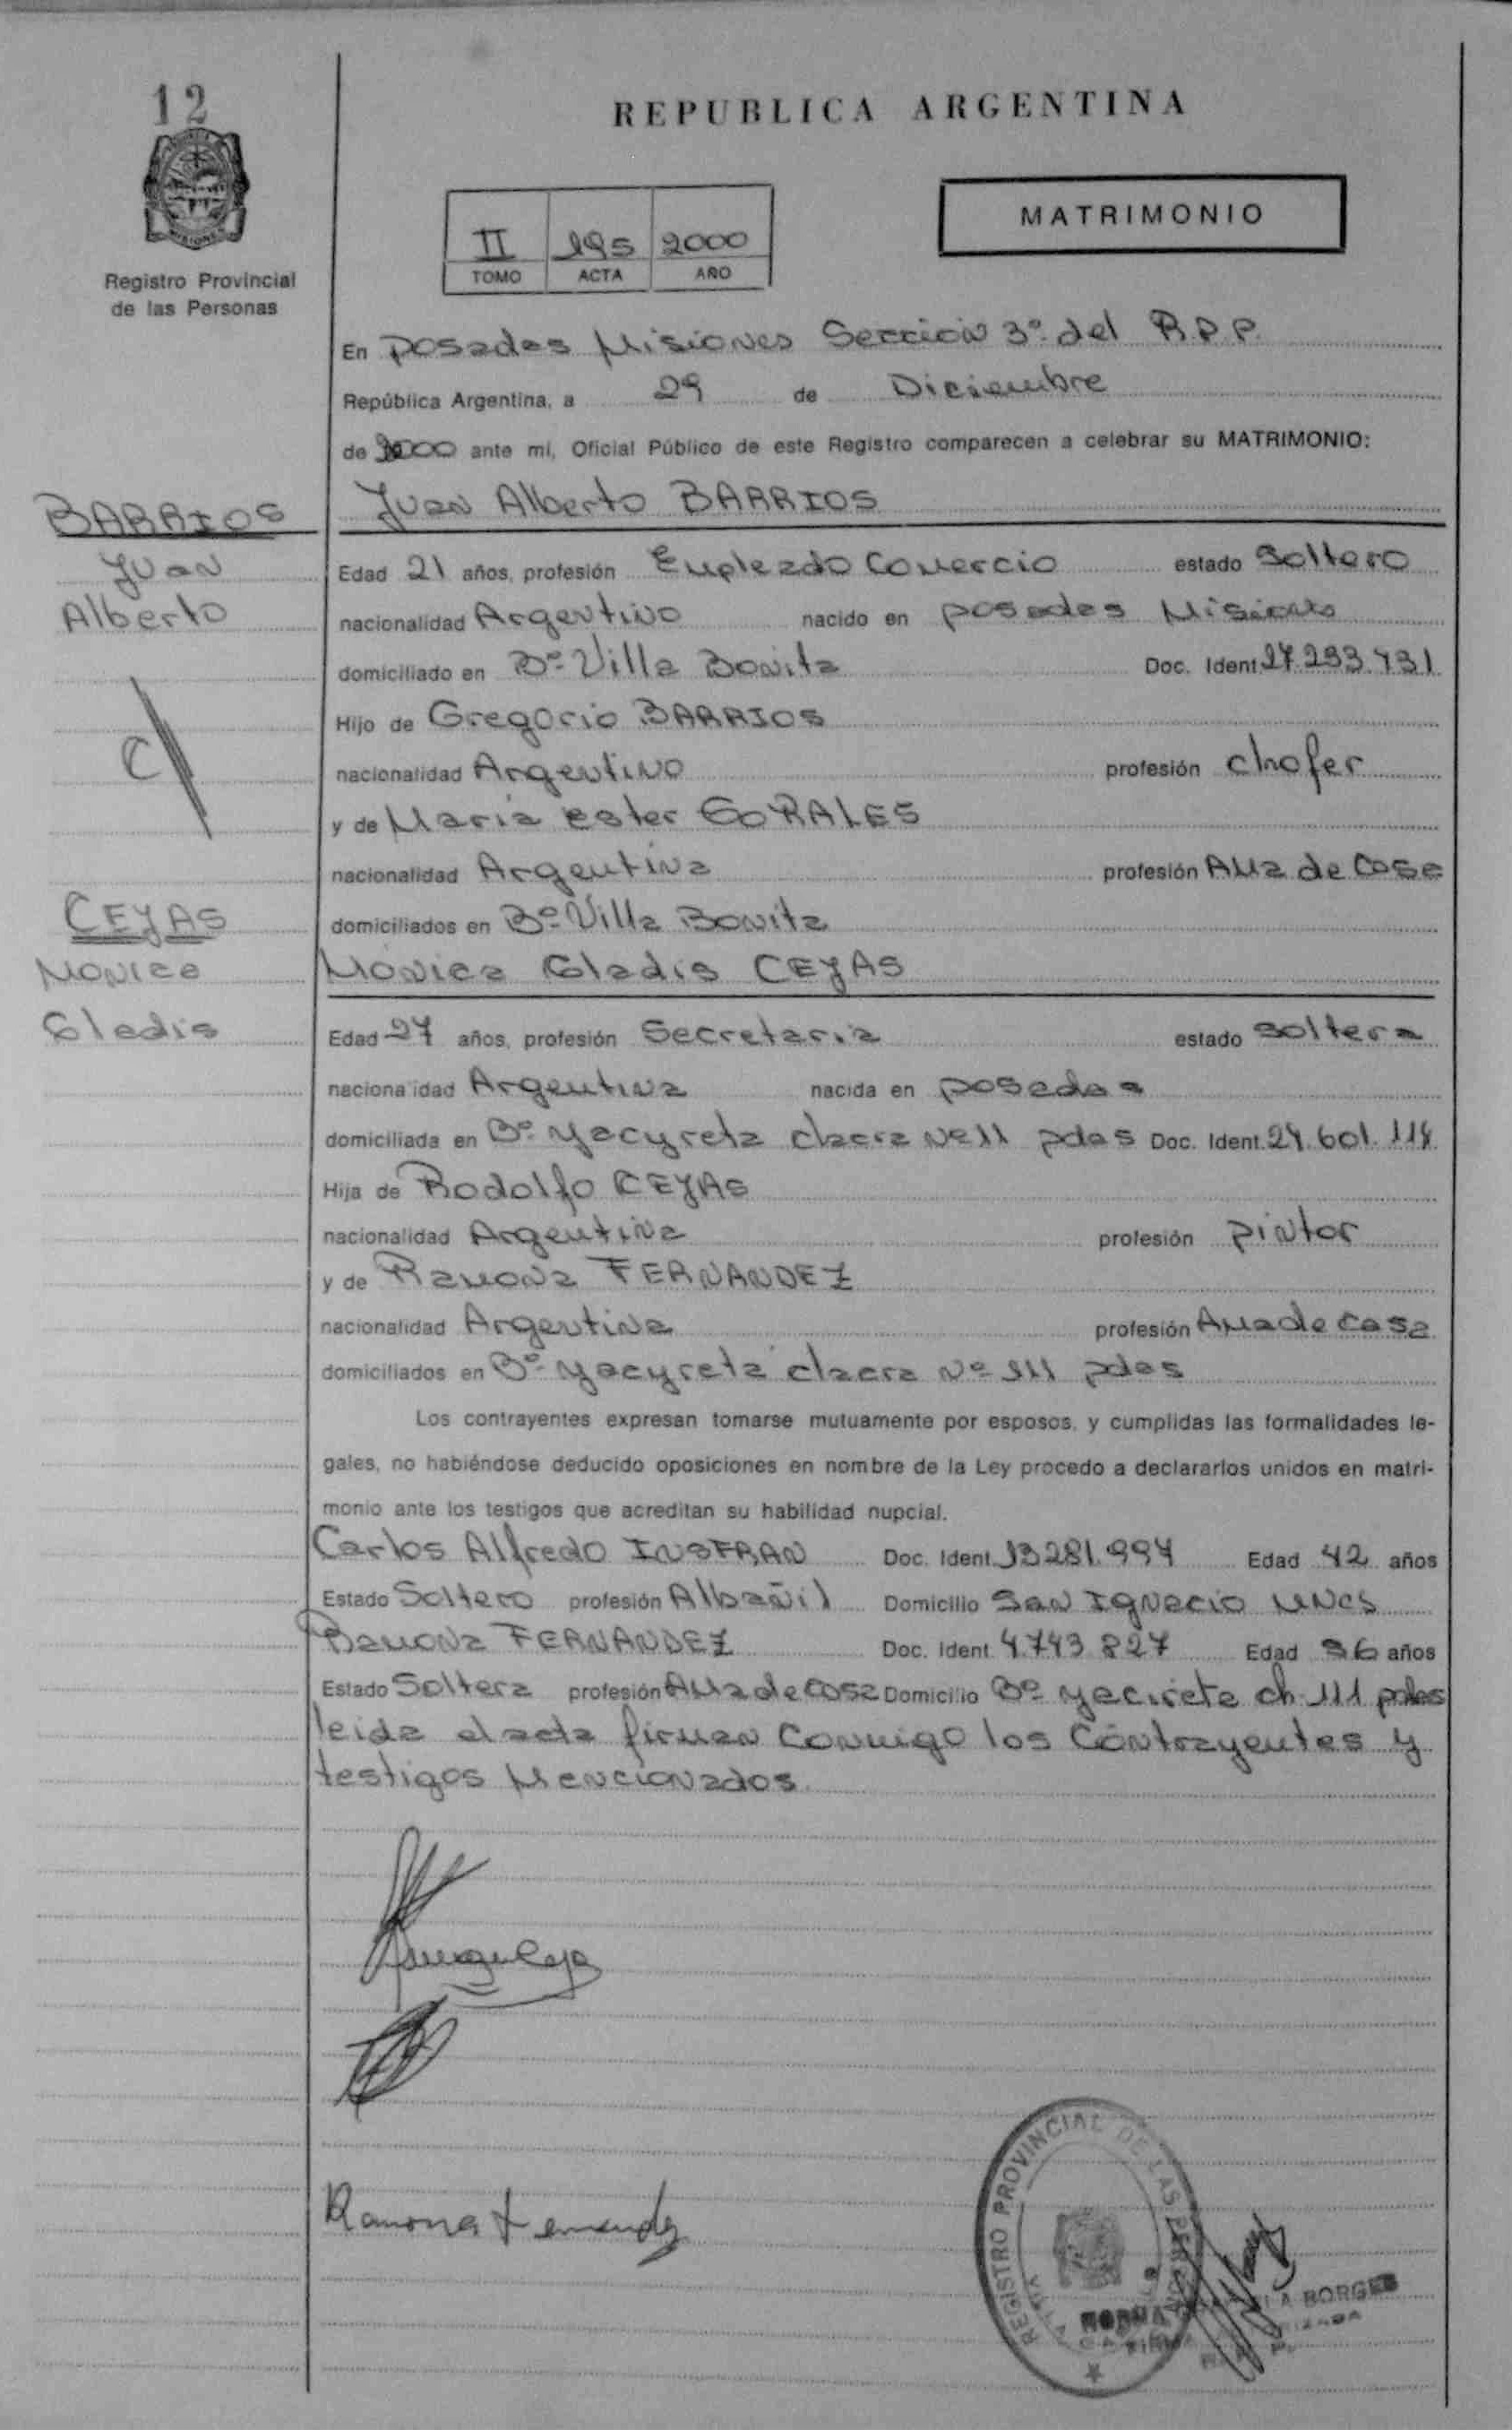 12
REPUBLICA ARGENTINA
MATRIMONIO
II 195 2000
TOMO ACTA AÑO
MISIONES
Registro Provincial
de las Personas
En Posadas Misiones Sección 3º del R.P.P.
República Argentina, a 29 de Diciembre
de 2000 ante mí, Oficial Público de este Registro comparecen a celebrar su MATRIMONIO:
BARRIOS
Juan
Alberto
Juan Alberto BARRIOS
Edad 21 años, profesión Empleado Comercio estado Soltero
nacionalidad Argentino nacido en Posadas Misiones
domiciliado en Bº Villa Bonita Doc. Ident 27.293.431
Hijo de Gregorio BARRIOS
nacionalidad Argentino profesión Chofer
y de María Ester GORALES
nacionalidad Argentina profesión Ama de Casa
domiciliados en Bº Villa Bonita
CEJAS
Monica
Gladis
Monica Gladis CEJAS
Edad 27 años, profesión Secretaria estado Soltera
nacionalidad Argentina nacida en Posadas
domiciliada en Bº Yacyreta chacra Nº 11 pdas Doc. Ident. 24.601.114
Hija de Rodolfo CEJAS
nacionalidad Argentina profesión Pintor
y de Ramona FERNANDEZ
nacionalidad Argentina profesión Ama de Casa
domiciliados en Bº Yacyretá chacra Nº 111 pdas
Los contrayentes expresan tomarse mutuamente por esposos, y cumplidas las formalidades le-
gales, no habiéndose deducido oposiciones en nombre de la Ley procedo a declararlos unidos en matri-
monio ante los testigos que acreditan su habilidad nupcial.
Carlos Alfredo INSFRAN Doc. Ident. 13.281.994 Edad 42 años
Estado Soltero profesión Albañil Domicilio San Ignacio Mnes
Ramona FERNANDEZ Doc. Ident. 4.743.827 Edad 56 años
Estado Soltera profesión Ama de Casa Domicilio Bº Yacireta ch 111 pdas
leida el acta firman conmigo los Contrayentes y
testigos Mencionados.
Ramona Fernandez
REGISTRO PROVINCIAL DE LAS PERSONAS
BORGES